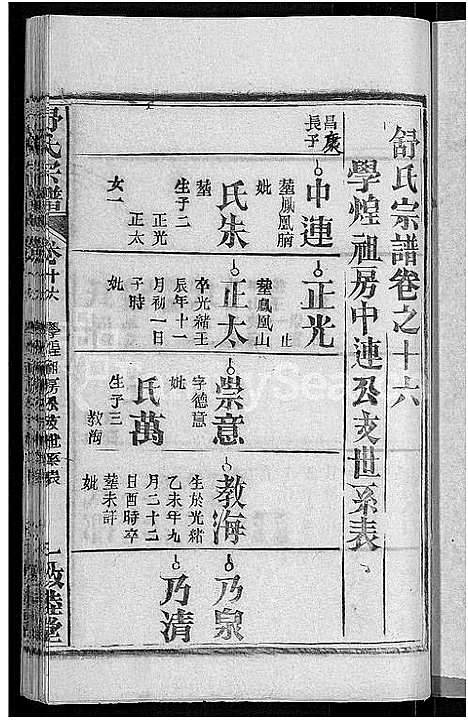 舒氏宗譜卷之十六
學煌祖房中連公支世系表
昌康
長子
中連
塟鳳凰腦
妣
朱氏
塟
生子二
正光
正太
女一
正光
止
塟鳳凰山
正太
卒光緒壬
辰年十一
月初一日
子時
妣
崇意
字德意
妣
萬氏
生子三
教海
教海
生於光緒
乙未年九
月二十二
日酉時卒
塟未詳
妣
乃泉
乃清
舒氏宗譜
卷十六
學煌祖房公支世系表
一
睦堂